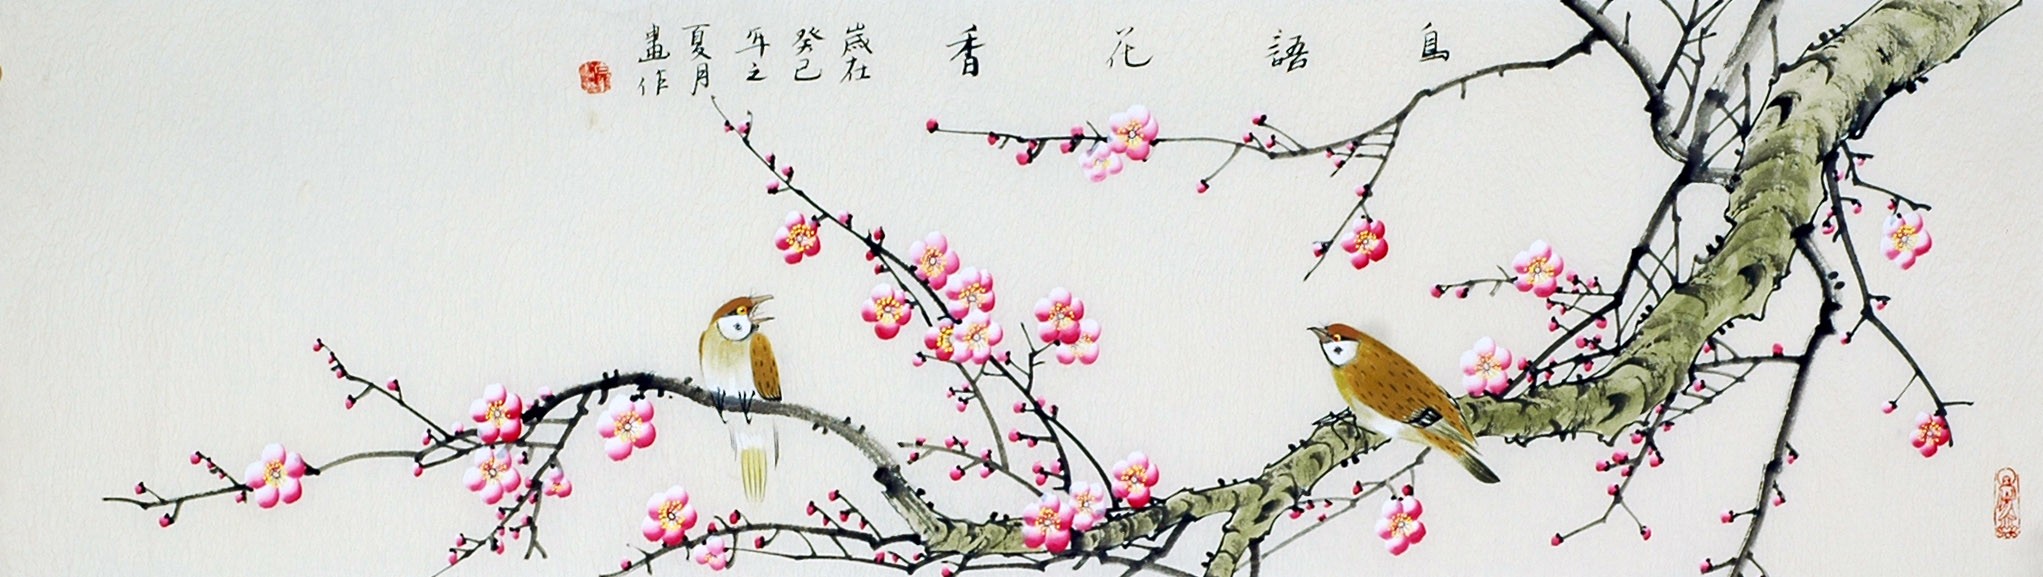 鳥語花香
歲在
癸巳
年之
夏月
畫作